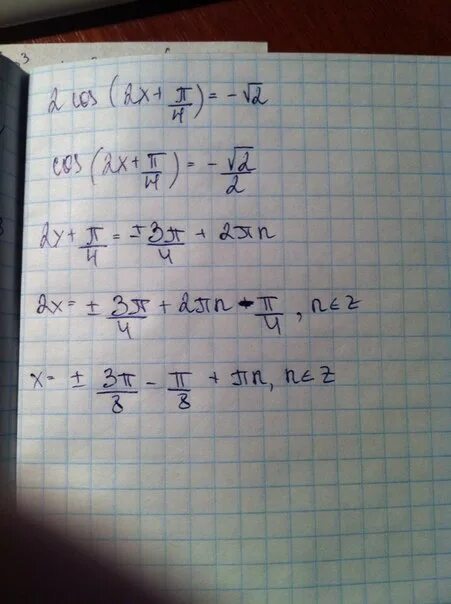 3
2 cos (2x + π/4) = -√2
cos (2x + π/4) = - √2/2
2y + π/4 = ± 3π/4 + 2πn
2x = ± 3π/4 + 2πn - π/4, n∈z
x = ± 3π/8 - π/8 + πn, n∈z